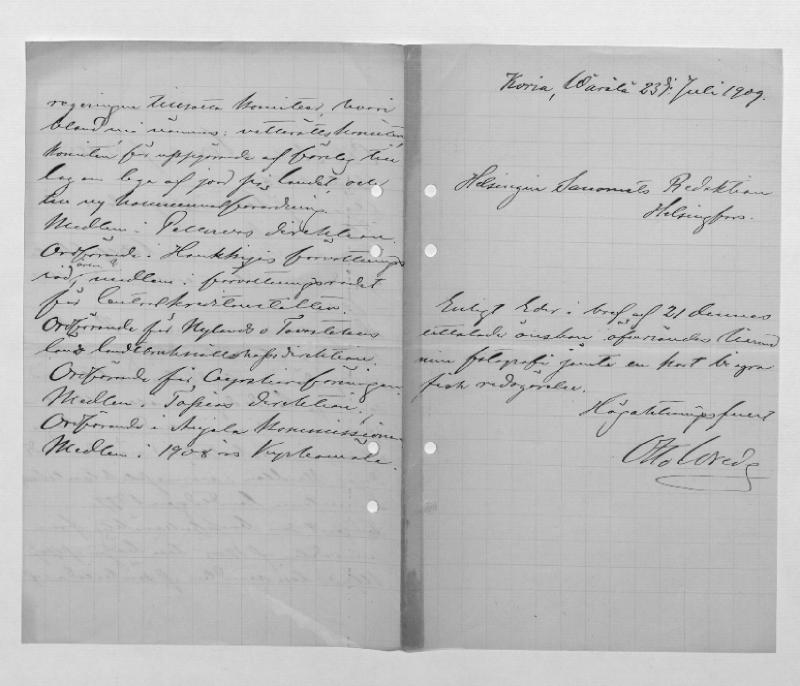 regeringen tillsatta komiteer, hvari
bland må nämnas: vattenrättskomitén,
komitén för uppgörande af förslag till
lag om lega af jord på landet och
till ny kommunalförordning.
Medlem i Pellervos direktion.
Ordförande i Hankkijas förvaltnings
råd, även medlem i förvaltningsrådet
för Centralkreditanstalten.
Ordförande för Nylands o Tavastehus
läns landtbrukssällskaps direktion.
Ordförande för föreningen.
Medlem i direktion.
Ordförande i Anjala kommission
Medlem i 1908 års Kyrkomöte.
Koria, Wärälä 23 d. Juli 1909.
Helsingin Sanomats Redaktion
Helsingfors.
Enligt Eder i bref af 21 dennes
uttalade önskan öfversändes
min fotografi jämte en kort biogra
fisk redogörelse.
Högaktningsfullt
Otto Wrede